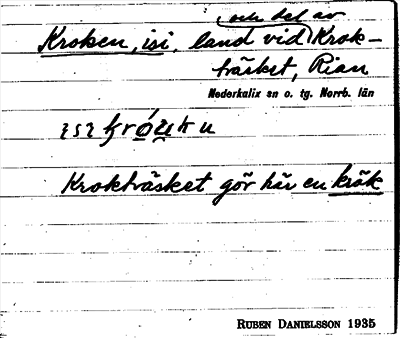 och del av
Kroken, isi, land vid Krok-
träsket, Rian
Nederkalix sn o. tg. Norrb. län
Krokträsket gör här en krök
RUBEN DANIELSSON 1935